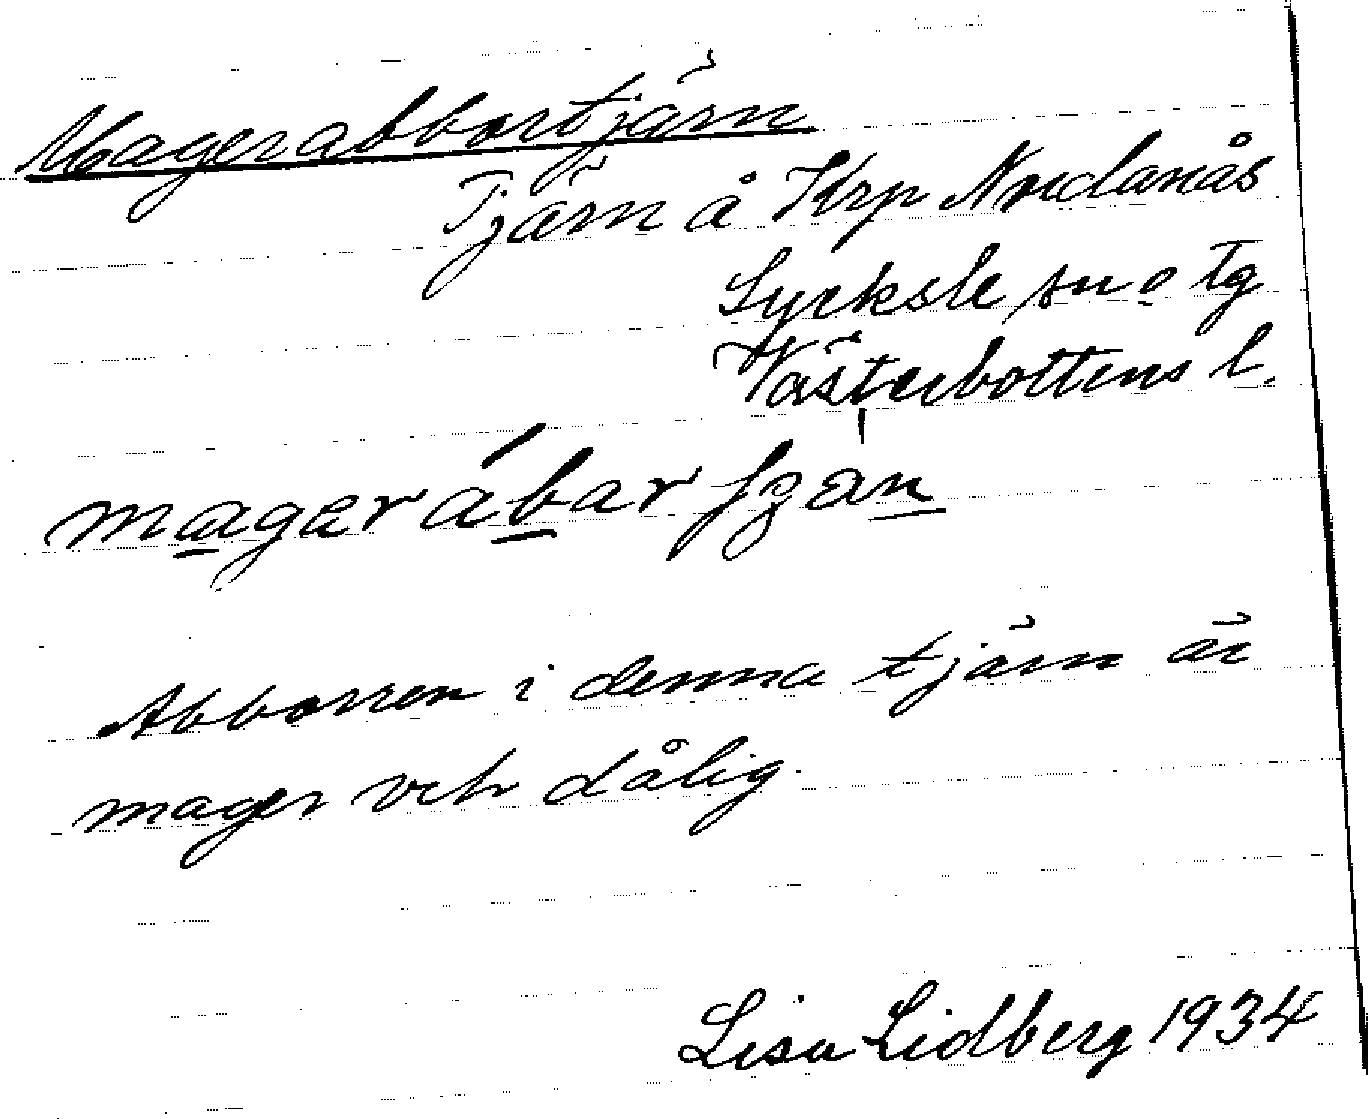 Magerabbortjärn
Tjärn å Krp Nordanås
Lycksele sn o tg
Västerbottens l.
Abborren i denna tjärn är
mager och dålig.
Lisa Lidberg 1934